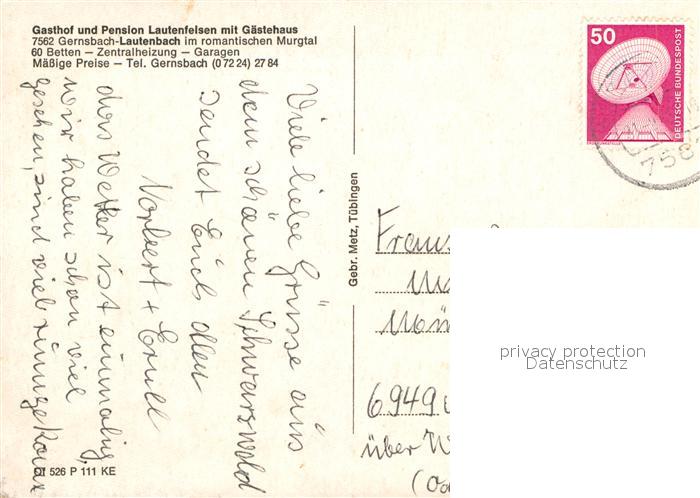 Gasthof und Pension Lautenfelsen mit Gästehaus
7562 Gernsbach-Lautenbach im romantischen Murgtal
60 Betten – Zentralheizung – Garagen
Mäßige Preise – Tel. Gernsbach (0 72 24) 27 84
Viele liebe Grüsse aus
dem schönen Schwarzwald
sendet Euch allen
Norbert +
das Wetter ist einmalig,
wir haben schon viel
gesehen, sind viel rumgekomm
DI 526 P 111 KE
Gebr. Metz, Tübingen
50
DEUTSCHE BUNDESPOST
758
6949
über W
privacy protection
Datenschutz